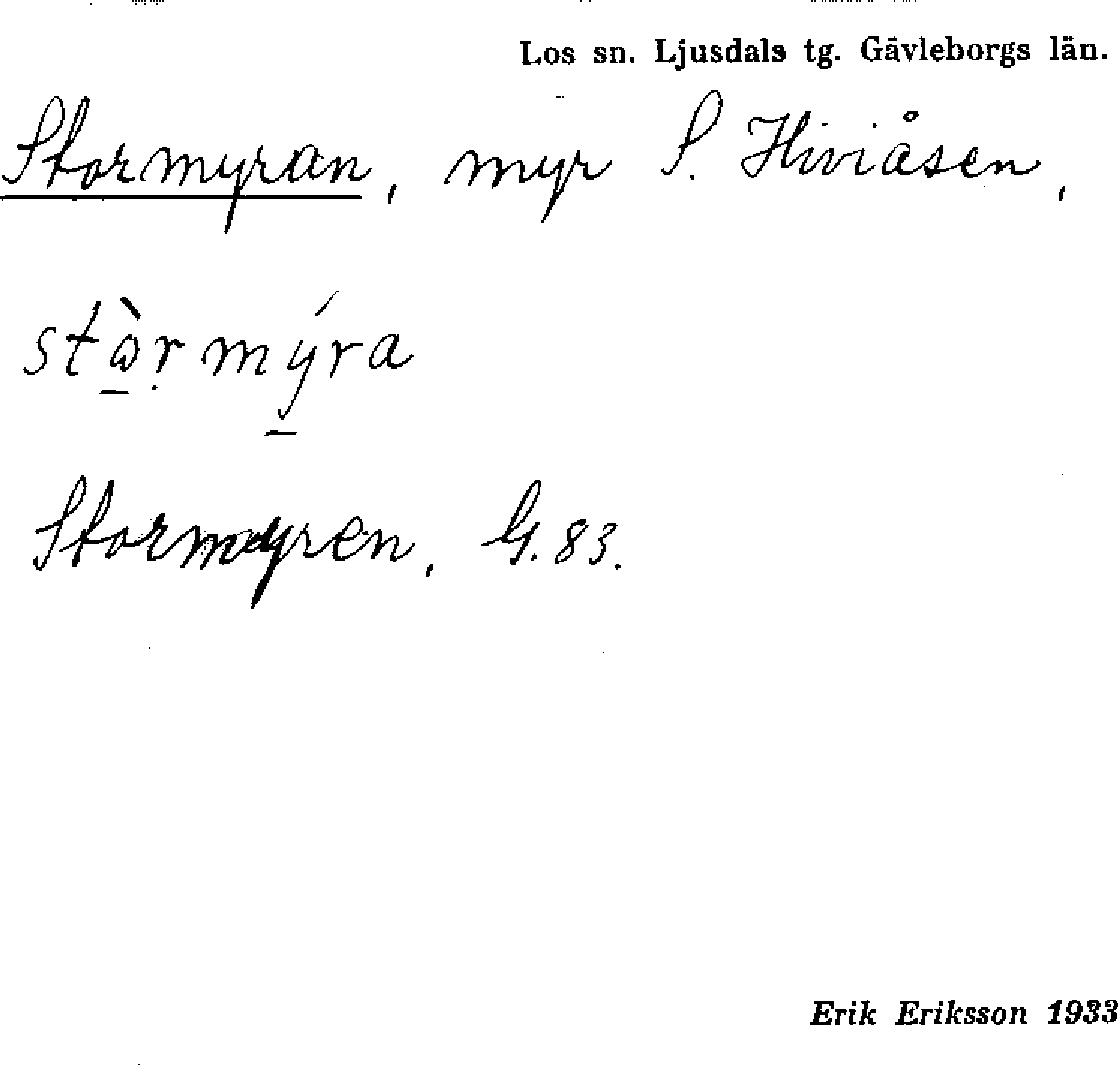 Los sn. Ljusdals tg. Gävleborgs län.
Stormyran, myr S. Hiviåsen,
stɷ̠̀ṛmý̠ra
Stormyren, G. 83.
Erik Eriksson 1933